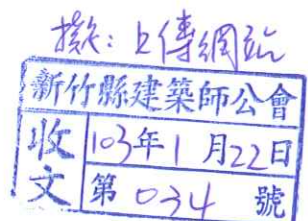 擬：上傳網站
新竹縣建築師公會
收文
103年1月22日
第034號